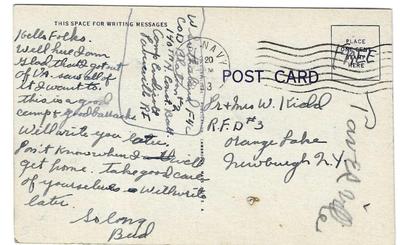 THIS SPACE FOR WRITING MESSAGES
Hello Folks.
Well here I am
Glad that I got out
of VA. saw all of
it I want to.
this is a good
camp & good barracks
Will write you later,
Don't know when I will
get home. Take good care
of yourselves. Will write
later.
So long
Bud
Co. B
Camp Endicott
RI
NAVY
20
3
PLACE
ONE CENT
HERE
FREE
POST CARD
Mr & Mrs W. Kidd
R.F.D #3
Orange Lake
Newburgh N.Y